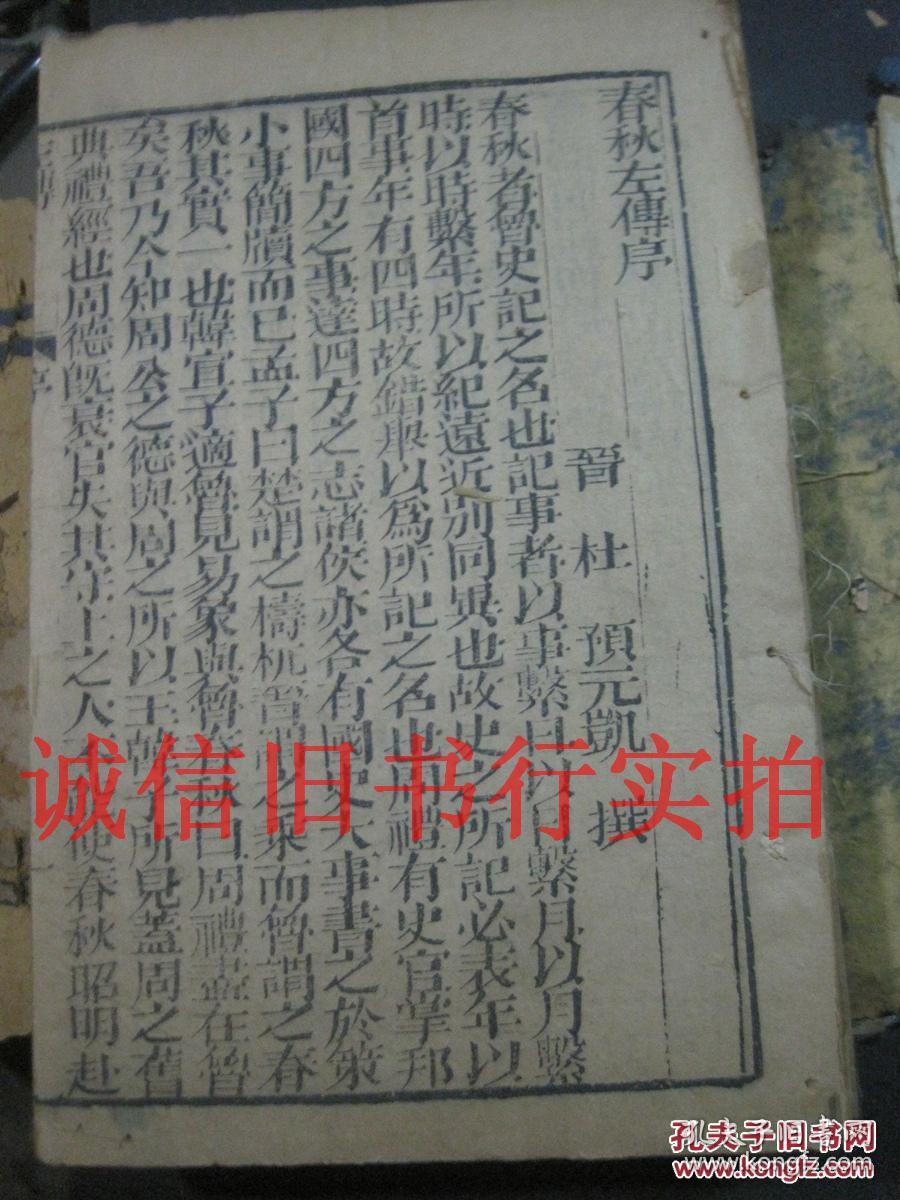 春秋左傳序
晉 杜 預元凱 撰
春秋者魯史記之名也記事者以事繫日以日繫月以月繫
時以時繫年所以紀遠近別同異也故史之所記必表年以
首事年有四時故錯舉以為所記之名也周禮有史官掌邦
國四方之事達四方之志諸侯亦各有國史大事書之於策
小事簡牘而已孟子曰楚謂之檮杌晉謂之乘而魯謂之春
秋其實一也韓宣子適魯見易象與魯春秋曰周禮盡在魯
矣吾乃今知周公之德與周之所以王韓子所見蓋周之舊
典禮經也周德既衰官失其守上之人不能使春秋昭明赴
序
诚信旧书行实拍
孔夫子旧书网
www.kongfz.com